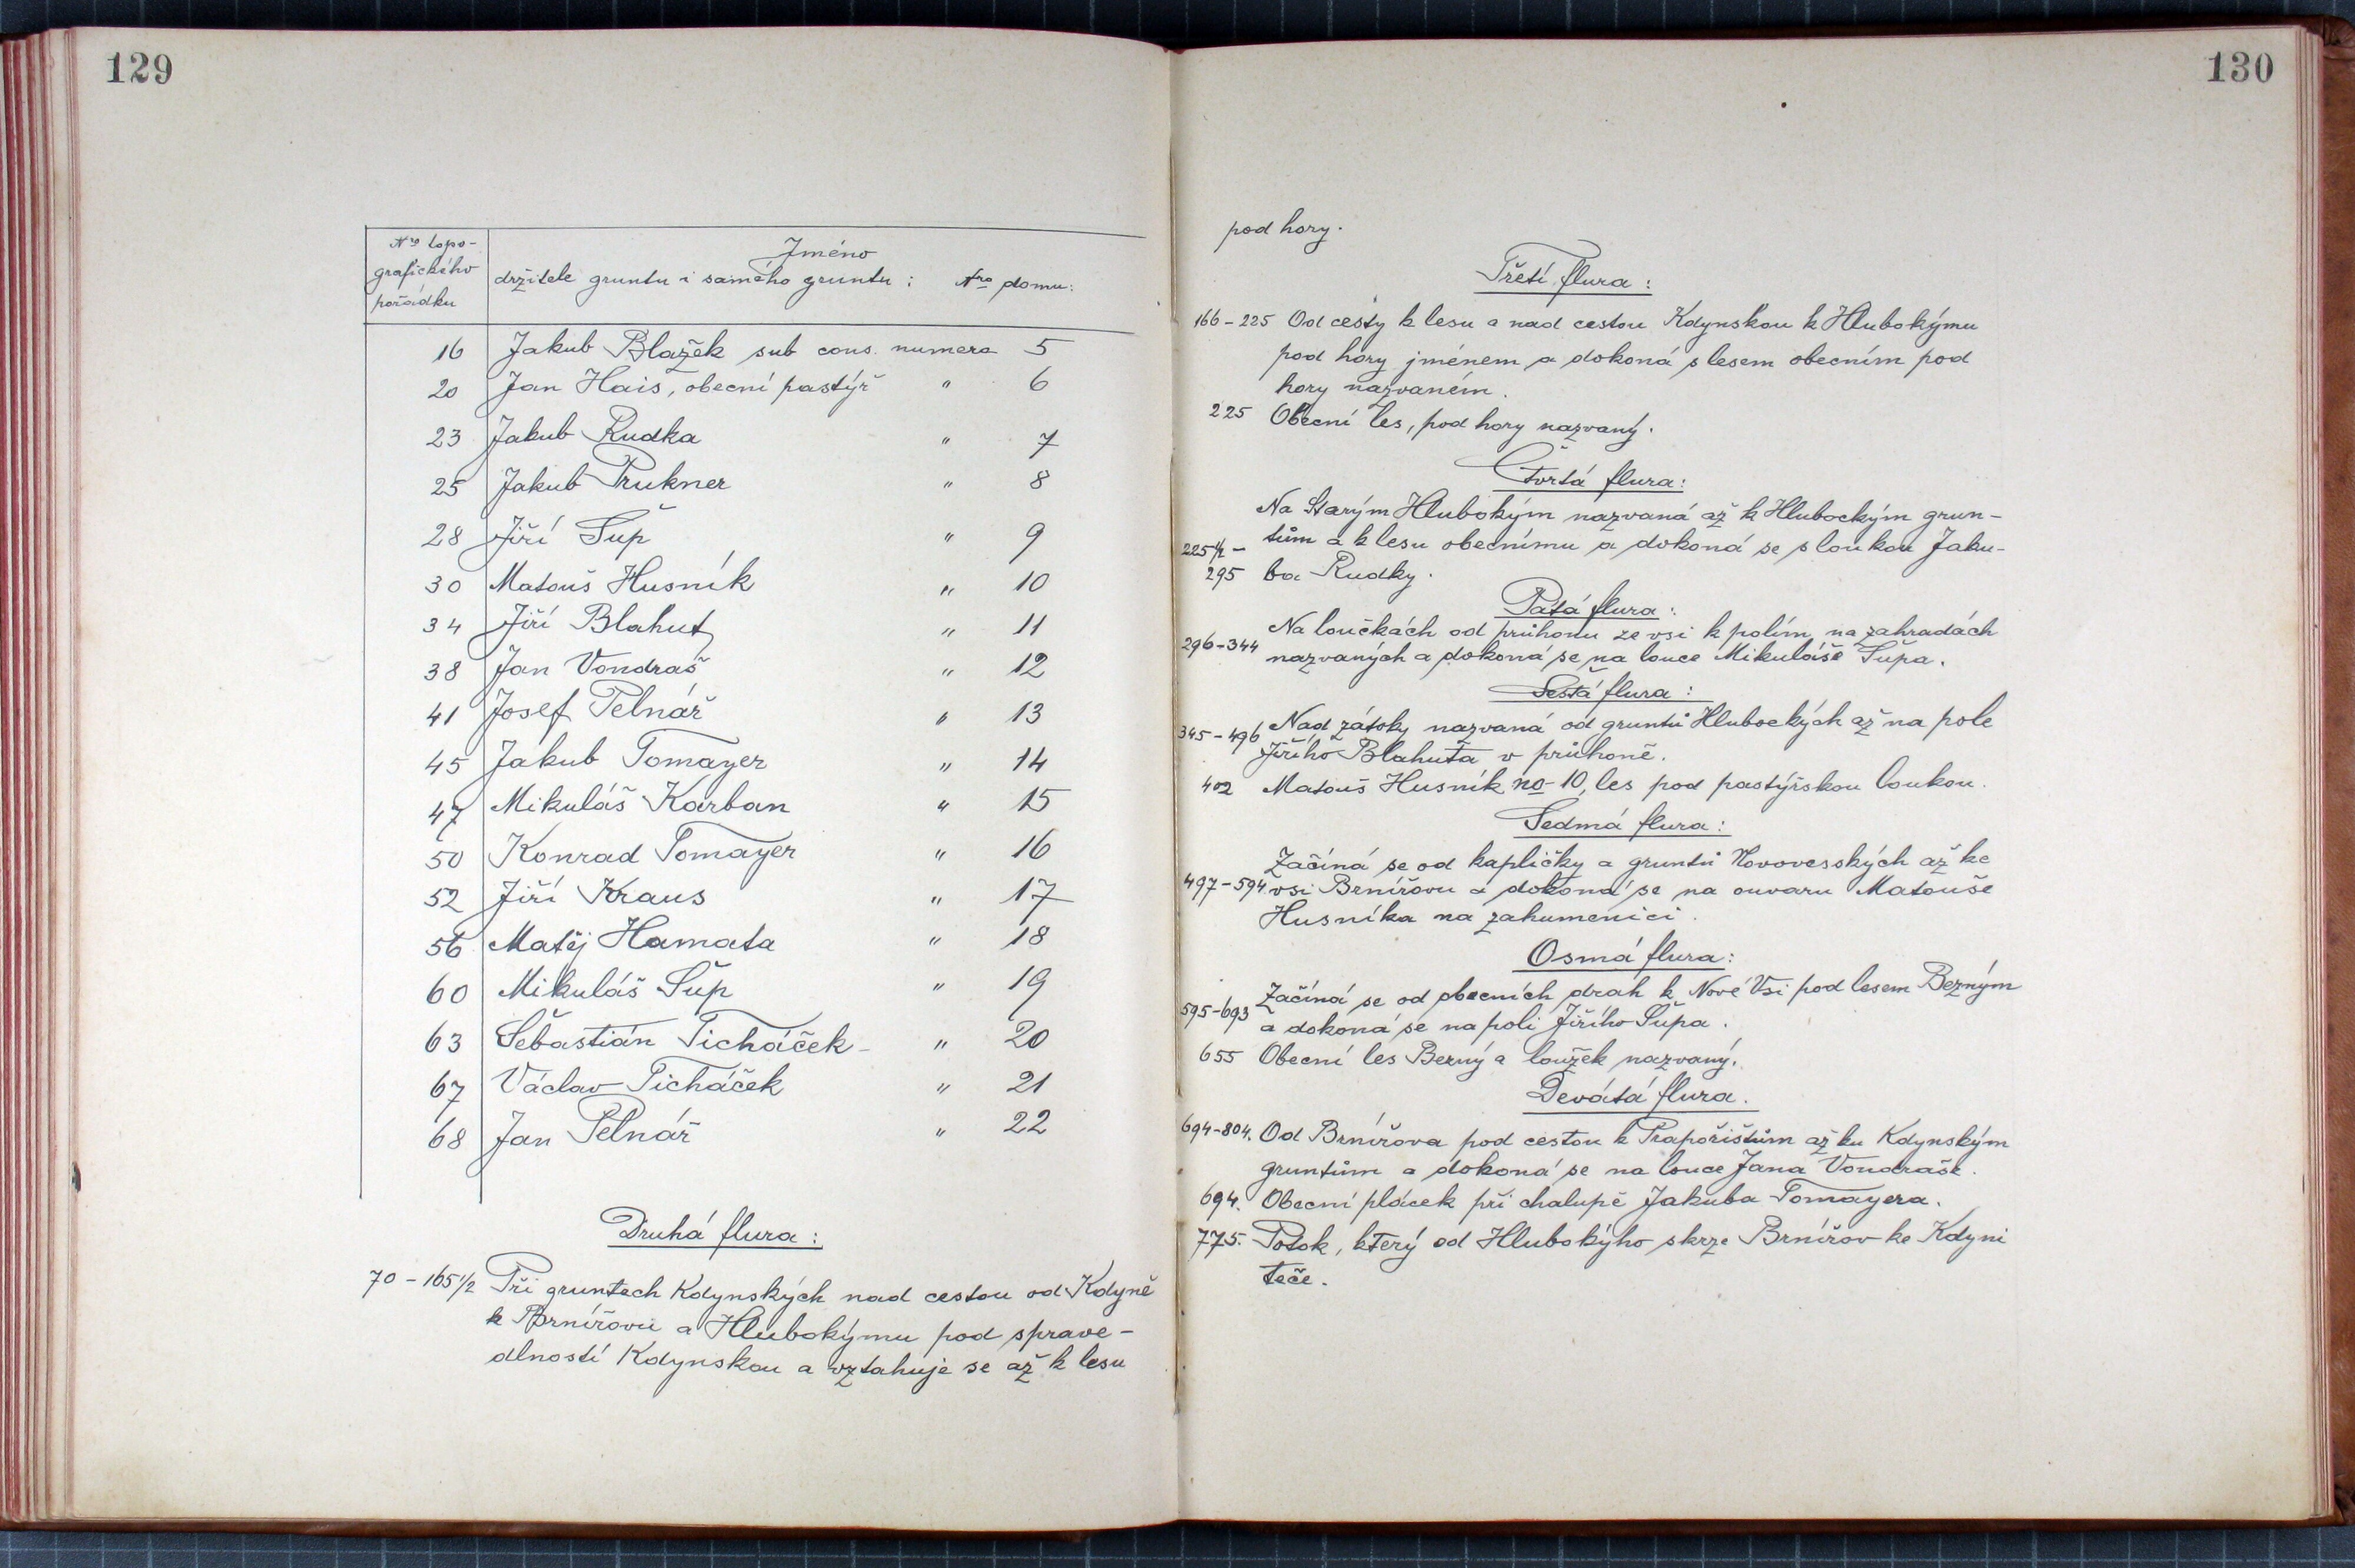 129
Nro topo-
grafického
pořádku
Jméno
držitele gruntu i samého gruntu : Nro domu:
16 Jakub Blažek sub cons. numero 5
20 Jan Hais, obecní pastýř " 6
23 Jakub Rudka " 7
25 Jakub Prukner " 8
28 Jiří Šup " 9
30 Matouš Husník " 10
34 Jiří Blahut " 11
38 Jan Vondraš " 12
41 Josef Pelnář " 13
45 Jakub Tomayer " 14
47 Mikuláš Karban " 15
50 Konrad Tomayer " 16
52 Jiří Kraus " 17
56 Matěj Hamata " 18
60 Mikuláš Šup " 19
63 Šebastián Ticháček " 20
67 Václav Ticháček " 21
68 Jan Pelnář " 22
Druhá flura :
70 - 165 1/2 Při gruntech Kdynských nad cestou od Kdyně
k Brnířovu a Hlubokýmu pod sprave-
dlností Kdynskou a vztahuje se až k lesu
130
pod hory.
Třetí flura :
166 - 225 Od cesty k lesu a nad cestou Kdynskou k Hlubokýmu
pod hory jménem a dokoná s lesem obecním pod
hory nazvaném.
225 Obecní les, pod hory nazvaný.
Čtvrtá flura:
Na Starým Hlubokým nazvaná až k Hlubockým grun-
225 1/2 - tům a k lesu obecnímu a dokoná se s loukou Jaku-
295 ba Rudky.
Patá flura :
Na loučkách od průhonu ze vsi k polím na zahradách
296-344 nazvaných a dokoná se na louce Mikuláše Šupa.
Šestá flura :
345-496 Nad zátoky nazvaná od gruntů Hlubockých až na pole
Jiřího Blahuta v průhoně.
402 Matouš Husník no 10, les pod pastýřskou loukou.
Sedmá flura :
Začíná se od kapličky a gruntů Novovesských až ke
497-594 vsi Brnířovu a dokoná se na ouvaru Matouše
Husníka na zahumenici.
Osmá flura:
Začíná se od obecních drah k Nové Vsi pod lesem Bezným
595-693 a dokoná se na poli Jiřího Šupa.
655 Obecní les Bezný a loužek nazvaný.
Devátá flura.
694-804. Od Brnířova pod cestou k Prapořištům až ku Kdynským
gruntům a dokoná se na louce Jana Vondraše.
694. Obecní plácek při chalupě Jakuba Tomayera.
775. Potok, který od Hlubokýho skrze Brnířov ke Kdyni
teče.